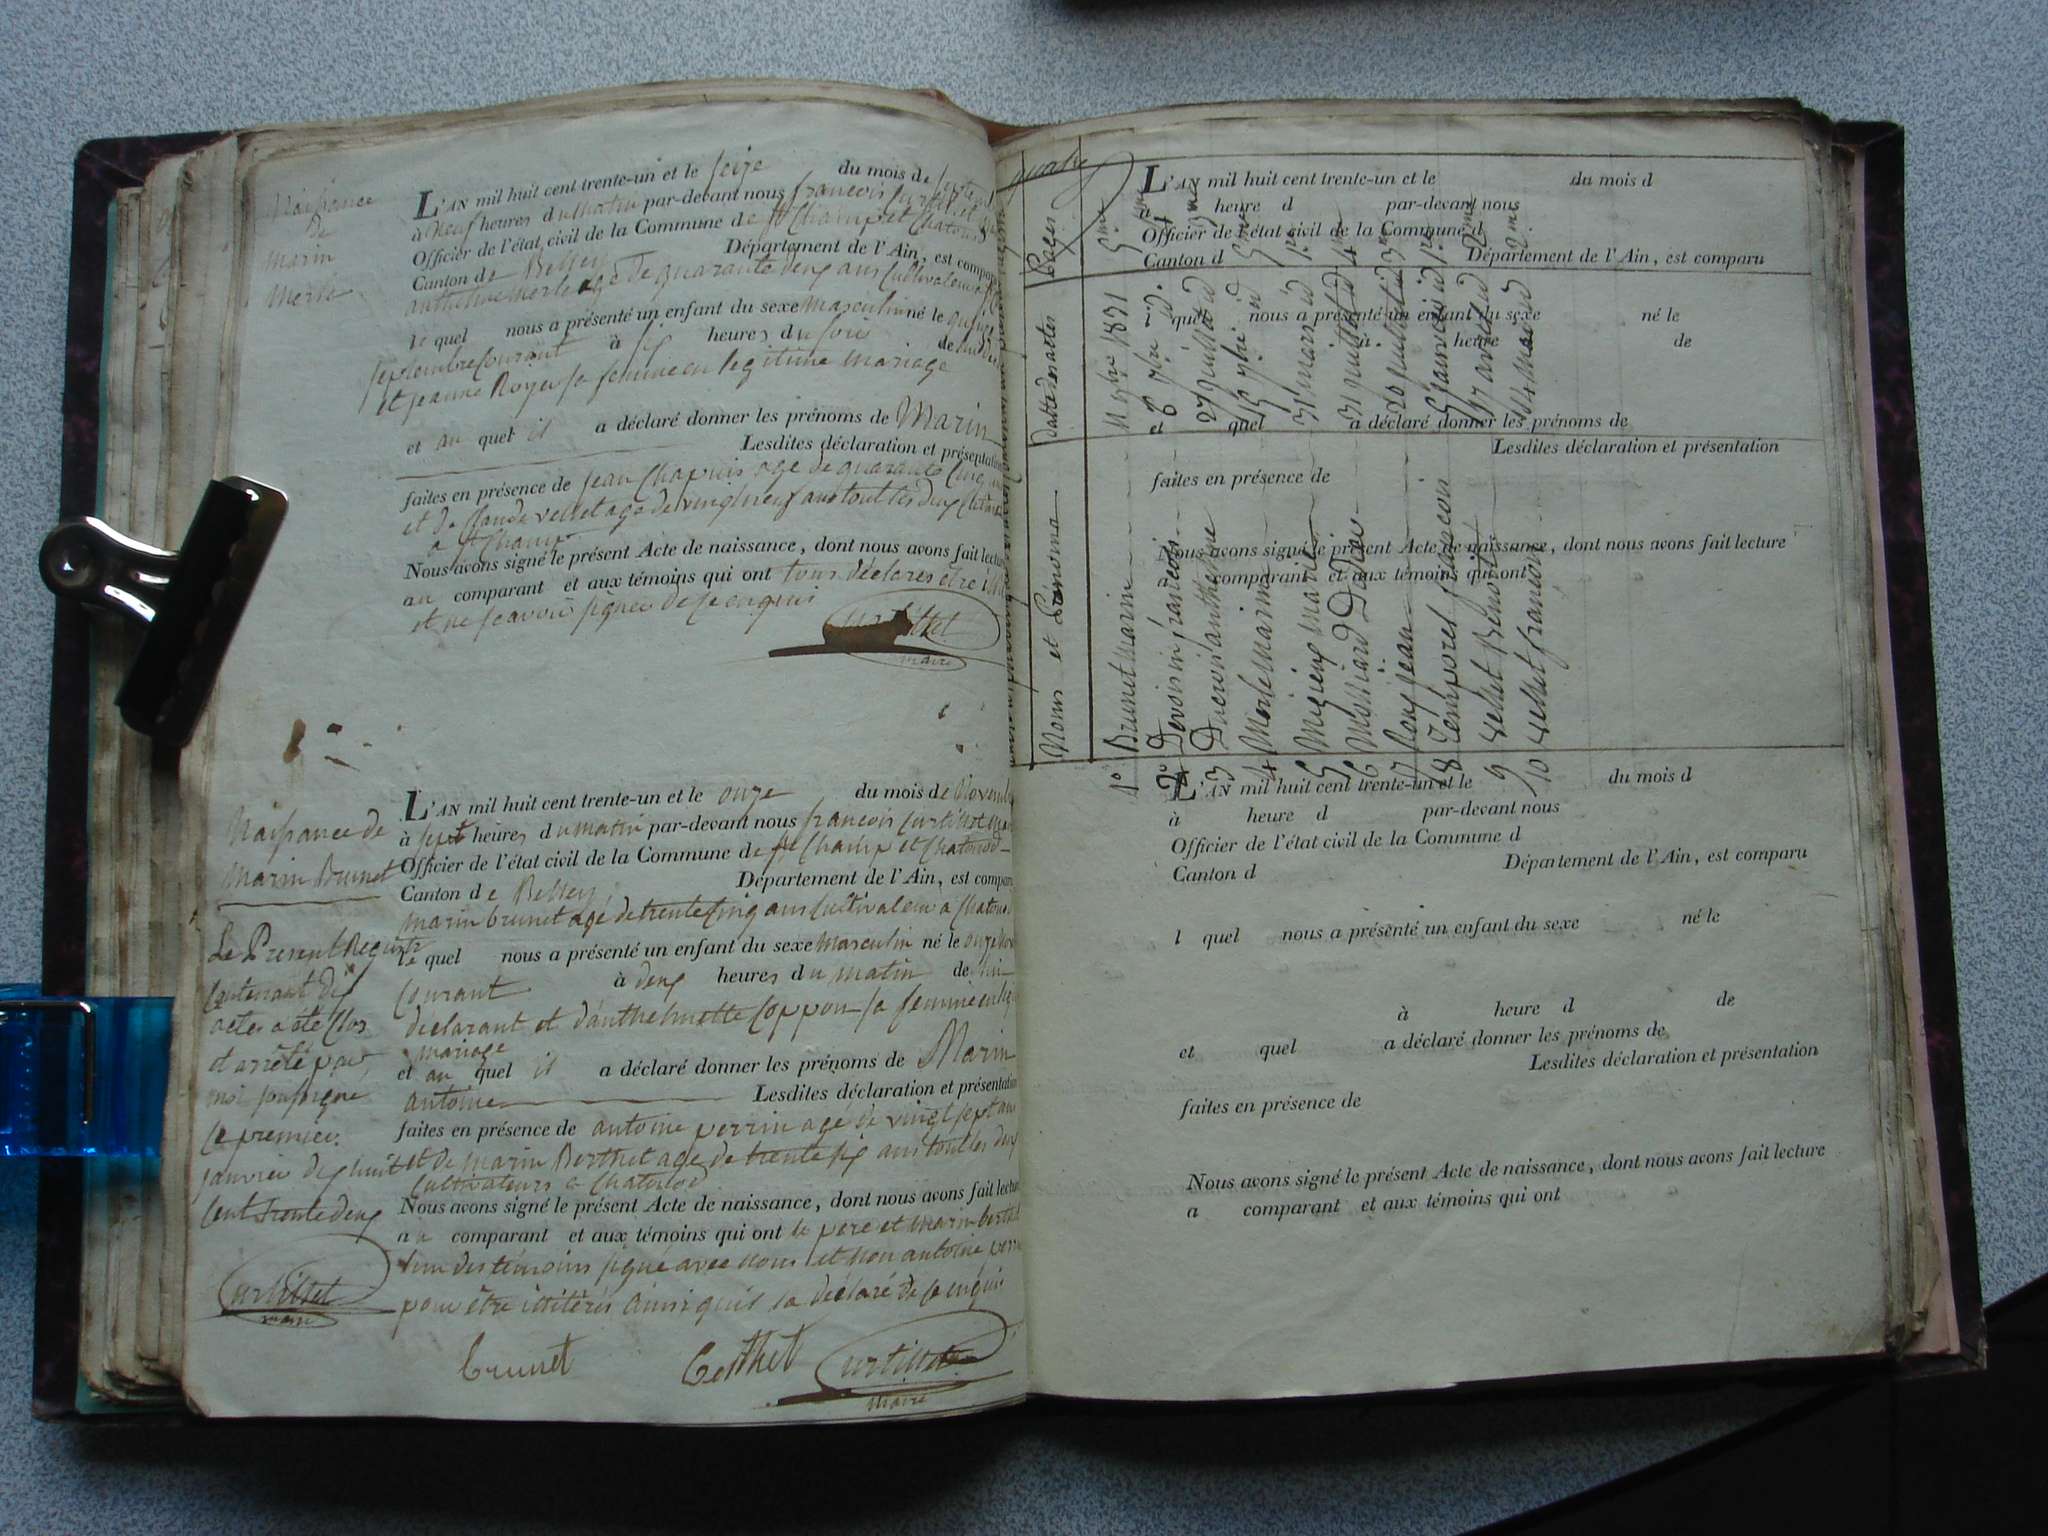 Naissance
de
marin
merle
L'AN mil huit cent trente-un et le seize du mois de septembre
à neuf heures du matin par-devant nous francois Curtillet
Officier de l'état civil de la Commune de St Champ et Chatonod
Canton de Belley Département de l'Ain, est comparu
anthelme merle age de quarante deux ans Cultivateur
le quel nous a présenté un enfant du sexe masculin né le quinze
septembre Courant à six heures du soir de
et jeanne Royer sa femme en legitime mariage
et au quel il a déclaré donner les prénoms de Marin
Lesdites déclaration et présentation
faites en présence de jean Chapuis age de quarante Cinq ans
et de Claude vellet age de vingt neuf ans tout les deux
a St Champ
Nous avons signé le présent Acte de naissance, dont nous avons fait lecture
au comparant et aux témoins qui ont tous déclarés etre
et ne scavoir signer de ce enquis
Curtillet
maire
Naissance de
Marin Brunet
L'AN mil huit cent trente-un et le onze du mois de Novembre
à sept heures du matin par-devant nous francois Curtillet
Officier de l'état civil de la Commune de St Champ et Chatonod
Canton de Belley Département de l'Ain, est comparu
marin brunet agé de trente Cinq ans Cultivateur a Chatonod
le quel nous a présenté un enfant du sexe masculin né le onze
Courant à deux heures du matin de lui
declarant et d'anthelmette Coppon sa femme en
mariage
et au quel il a déclaré donner les prénoms de Marin
antoine Lesdites déclaration et présentation
faites en présence de antoine perrin agé de vingt sept ans
et de marin Berthet age de trente six ans tout les deux
Cultivateurs a Chatonod
Nous avons signé le présent Acte de naissance, dont nous avons fait lecture
au comparant et aux témoins qui ont le pere et marin berthet
l'un des témoins signé avec nous et non antoine perrin
pour être illitérés ainsi quil la déclaré de ce enquis
brunet Berthet Curtillet
maire
Le Present Registre
Contenant dix
actes a été Clos
et arrêté par
moi soussigné
le premier
janvier dix huit
Cent trente deux
Curtillet
maire
Noms et Prénoms Datte des actes Pages
1º Brunet Marin 11 9bre 1831 5me
2º Devoisin francois 6 7bre id.
3 Ducroisi anthelme 27 juillet id
4 Merle Marin 16 7bre id 5me
5 Migieux Marie 31 mars id 1re
6 Mollliard Didier 31 juillet id 4me
7 Roux jean 20 juillet id 3me
8 Temporel francois 5 janvier id 1re
9 Vellet Benoit 17 avril id 2me
10 Vellet francois 14 Mai id 2me
L'AN mil huit cent trente-un et le du mois d
à heure d par-devant nous
Officier de l'état civil de la Commune d
Canton d Département de l'Ain, est comparu
l quel nous a présenté un enfant du sexe né le
à heure d de
et quel a déclaré donner les prénoms de
Lesdites déclaration et présentation
faites en présence de
Nous avons signé le présent Acte de naissance, dont nous avons fait lecture
a comparant et aux témoins qui ont
L'AN mil huit cent trente-un et le du mois d
à heure d par-devant nous
Officier de l'état civil de la Commune d
Canton d Département de l'Ain, est comparu
l quel nous a présenté un enfant du sexe né le
à heure d de
et quel a déclaré donner les prénoms de
Lesdites déclaration et présentation
faites en présence de
Nous avons signé le présent Acte de naissance, dont nous avons fait lecture
a comparant et aux témoins qui ont